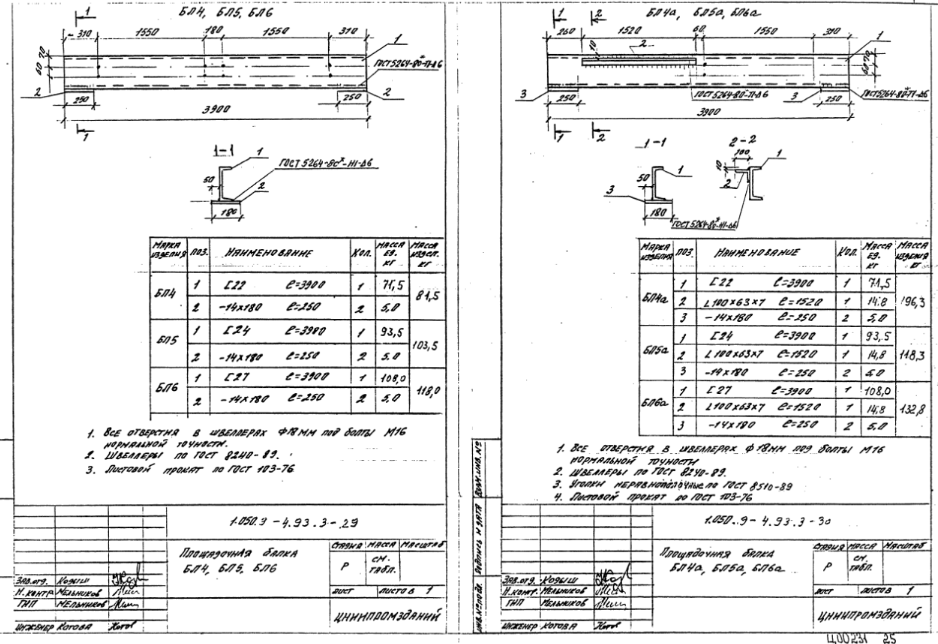 БЛ4, БЛ5, БЛ6
1
310 1550 180 1550 310
1
70
60
ГОСТ 5264-80-Т1-Δ6
2 250 250 2
3900
1
1-1
1
ГОСТ 5264-80-Н1-Δ6
50
2
180
МАРКА ИЗДЕЛИЯ ПОЗ. НАИМЕНОВАНИЕ КОЛ. МАССА ЕД. КГ МАССА ИЗДЕЛ. КГ
БЛ4 1 [22 ℓ=3900 1 71,5 81,5
2 -14×180 ℓ=250 2 5,0
БЛ5 1 [24 ℓ=3900 1 93,5 103,5
2 -14×180 ℓ=250 2 5,0
БЛ6 1 [27 ℓ=3900 1 108,0 118,0
2 -14×180 ℓ=250 2 5,0
1. Все отверстия в швеллерах Ф18мм под болты М16
нормальной точности.
2. Швеллеры по ГОСТ 8240-89.
3. Листовой прокат по ГОСТ 103-76
1.050.9-4.93.3-29
Площадочная балка
БЛ4, БЛ5, БЛ6
СТАДИЯ МАССА МАСШТАБ
Р см. табл.
ЛИСТ ЛИСТОВ 1
ЗАВ.ОТД. КОДЫШ
Н.КОНТР МЕЛЬНИКОВ
ГИП МЕЛЬНИКОВ
ИНЖЕНЕР КОТОВА
ЦНИИПРОМЗДАНИЙ
БЛ4а, БЛ5а, БЛ6а
1 2
260 1520 60 1550 310
10 2 1
60 70
ГОСТ 5264-80-Т1-Δ6
ГОСТ 5264-80-Т1-Δ6
3 250 3 250
3900
1 2
1-1 2-2
100
1 10 1
50 2
3
180
ГОСТ 5264-80-Н1-Δ6
МАРКА ИЗДЕЛИЯ ПОЗ. НАИМЕНОВАНИЕ КОЛ. МАССА ЕД. КГ МАССА ИЗДЕЛИЯ КГ
БЛ4а 1 [22 ℓ=3900 1 71,5 96,3
2 L100×63×7 ℓ=1520 1 14,8
3 -14×180 ℓ=250 2 5,0
БЛ5а 1 [24 ℓ=3900 1 93,5 118,3
2 L100×63×7 ℓ=1520 1 14,8
3 -14×180 ℓ=250 2 5,0
БЛ6а 1 [27 ℓ=3900 1 108,0 132,8
2 L100×63×7 ℓ=1520 1 14,8
3 -14×180 ℓ=250 2 5,0
1. Все отверстия в швеллерах Ф18мм под болты М16
нормальной точности
2. Швеллеры по ГОСТ 8240-89.
3. Уголки неравнополочные по ГОСТ 8510-89
4. Листовой прокат по ГОСТ 103-76
ВЗАМ.ИНВ.№
ПОДПИСЬ И ДАТА
ИНВ.№ПОДЛ.
1.050.9-4.93.3-30
Площадочная балка
БЛ4а, БЛ5а, БЛ6а
СТАДИЯ МАССА МАСШТАБ
Р см. табл.
ЛИСТ ЛИСТОВ 1
ЗАВ.ОТД. КОДЫШ
Н.КОНТР. МЕЛЬНИКОВ
ГИП МЕЛЬНИКОВ
ИНЖЕНЕР КОТОВА
ЦНИИПРОМЗДАНИЙ
Ц00231 25